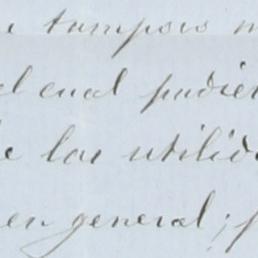 tampoco
el cual pudie
de las utilid
en general; p